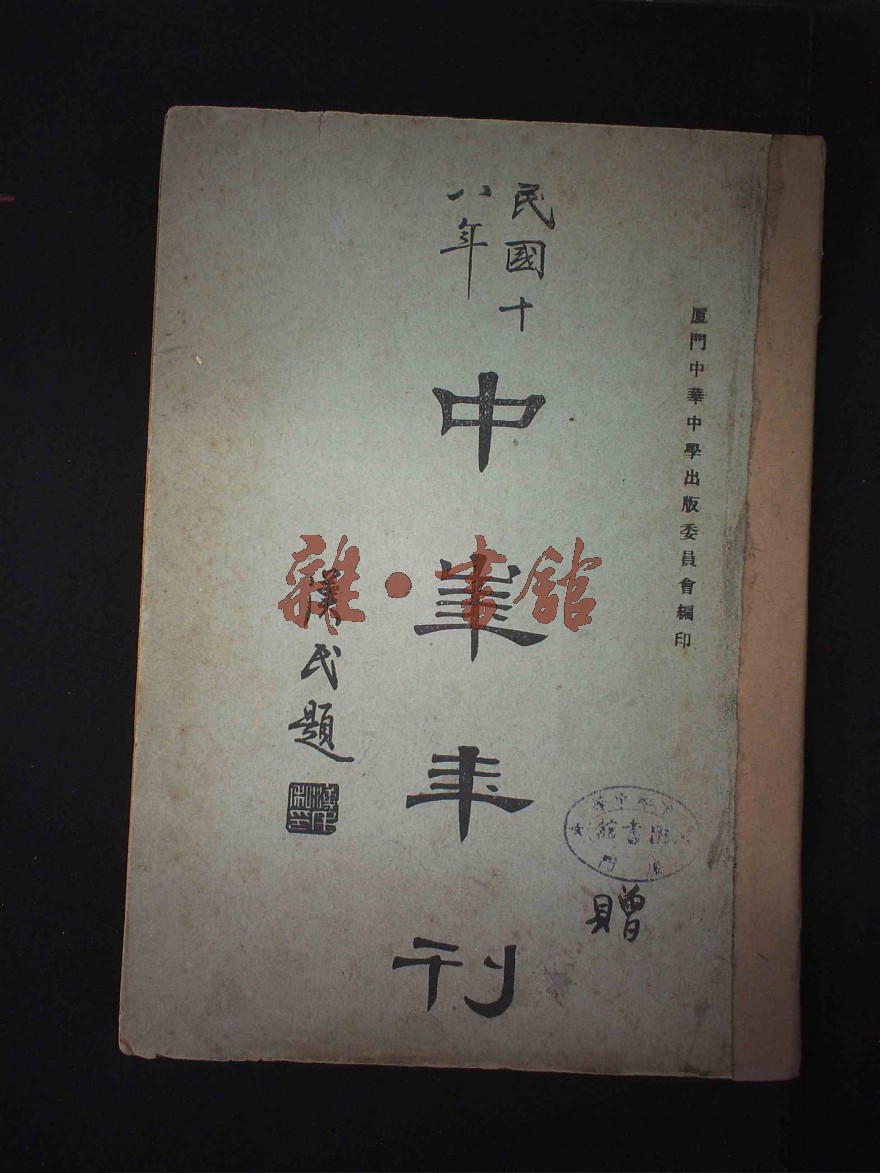 厦門中華中學出版委員會編印
民國十
八年
中華年刊
漢民題
圖書館
贈
雜·書館